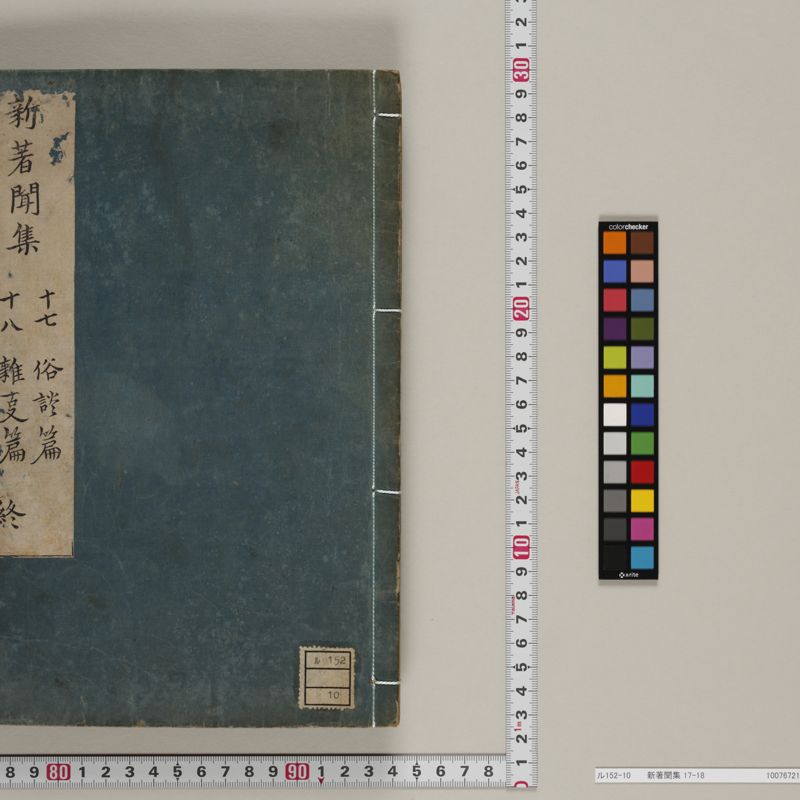 新著聞集
十七 俗談篇
十八 雜叓篇 終
ル 152
10
colorchecker
x-rite
ル152-10 新著聞集 17-18 10076721
2 1 30 9 8 7 6 5 4 3 2 1 20 9 8 7 6 5 4 3 2 1 10 9 8 7 6 5 4 3 2 1 0
8 9 80 1 2 3 4 5 6 7 8 9 90 1 2 3 4 5 6 7 8